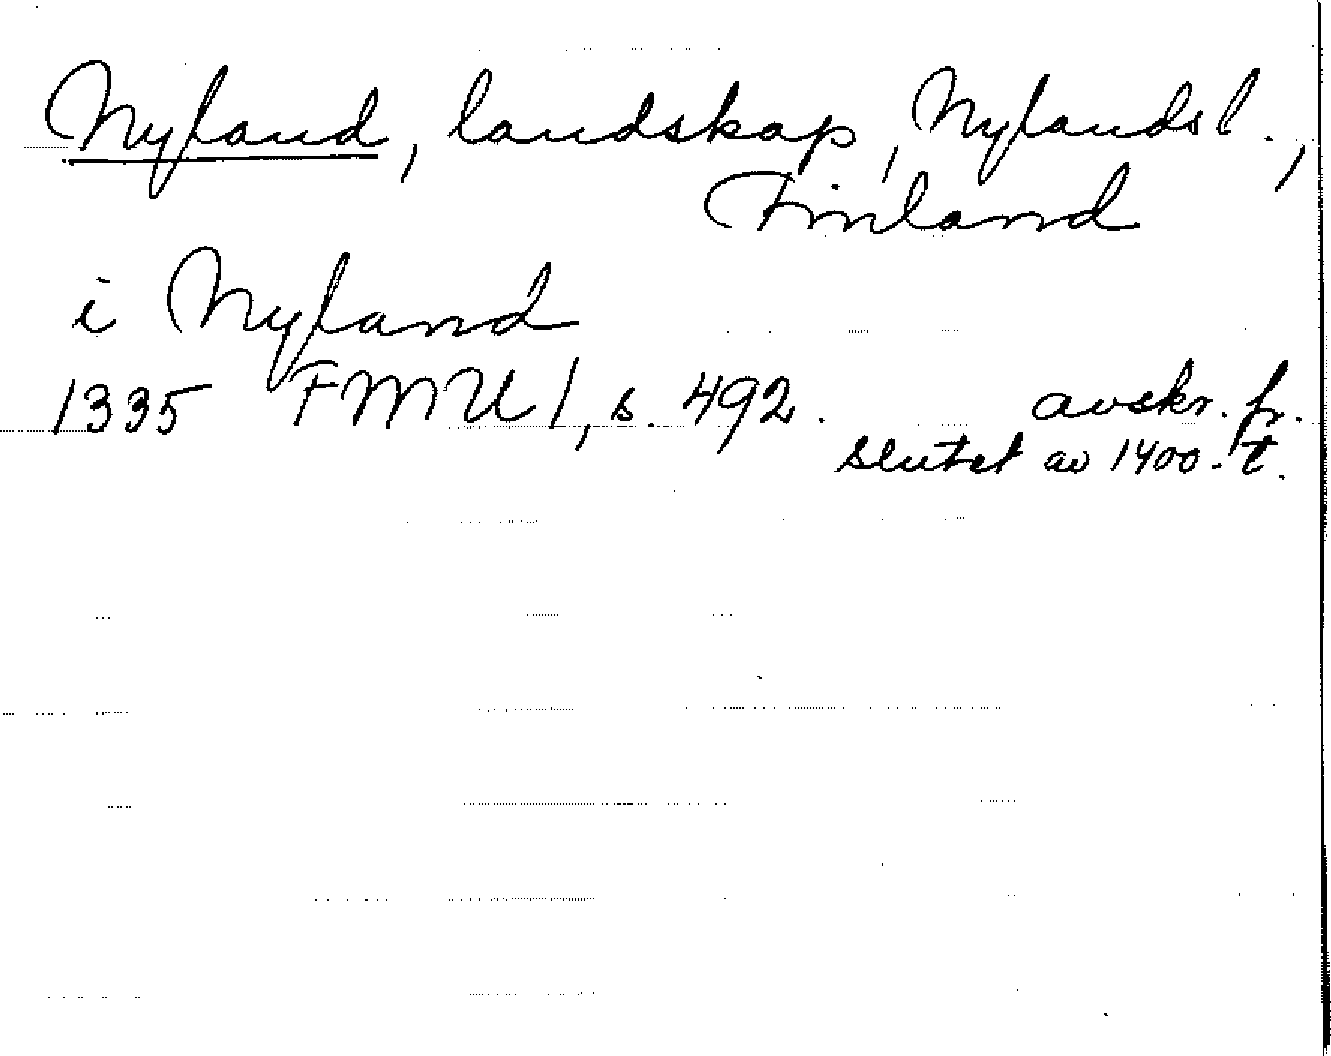 Nyland, landskap, Nylands l.,
Finland
i Nyland
1335 FMU 1, s. 492. avskr. fr.
slutet av 1400-t.